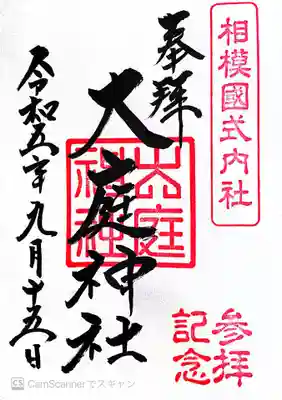 相模國式内社
奉拜
大庭神社
大庭神社
参拝記念
令和五年九月十五日
CS CamScannerでスキャン